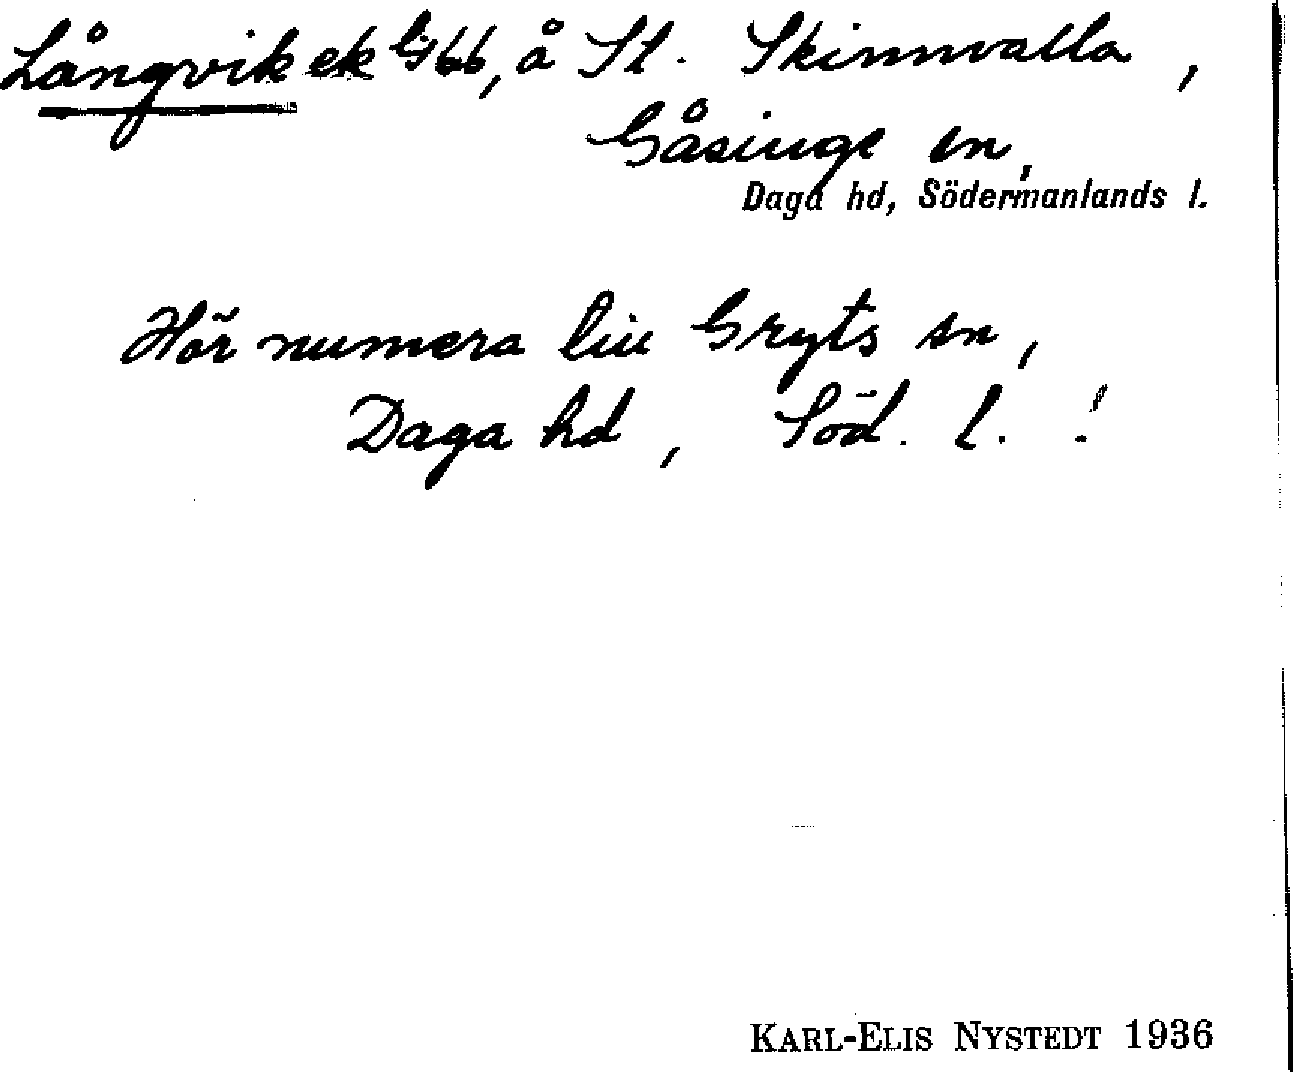 Långvik ek G 66, å St. Skinnvalla,
Gåsinge sn,
Daga hd, Södermanlands l.
Hör numera till Gryts sn,
Daga hd, Söd. l. !
KARL-ELIS NYSTEDT 1936